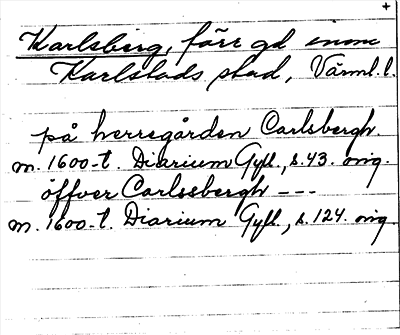 +
Karlsberg, förr gd inom
Karlstads stad, Värml. l.
på herregården Carlsbergh.
m. 1600-t. Diarium Gyll., s. 43. orig.
öffver Carlssbergh - - -
m. 1600-t. Diarium Gyll., s. 124. orig